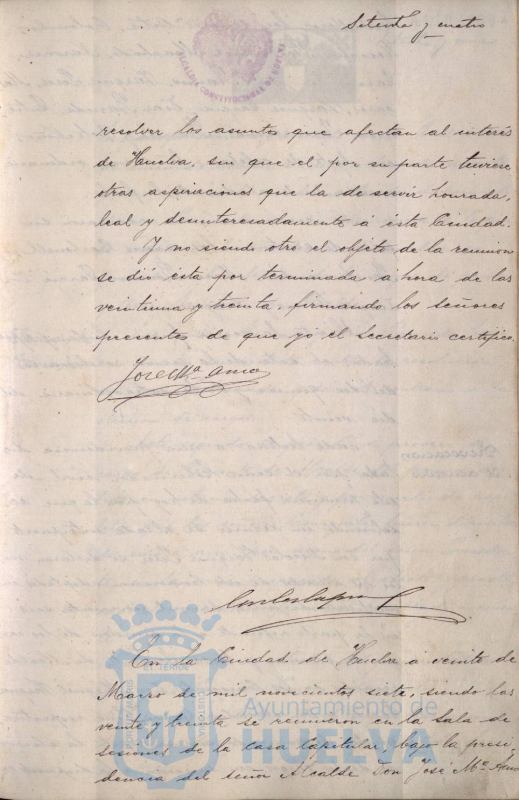 Setenta y cuatro
ALCALDIA CONSTITUCIONAL DE HUELVA
resolver los asuntos que afectan al interés
de Huelva, sin que el por su parte tuviese
otras aspiraciones que la de servir honrada,
leal y desinteresadamente á ésta Ciudad.
Y no siendo otro el objeto de la reunion
se dió ésta por terminada á hora de las
veintiuna y treinta, firmando los señores
presentes de que yo el Secretario certifico.
José Mª
En la Ciudad de Huelva á veinte de
Marzo de mil novecientos siete, siendo las
veinte y treinta se reunieron en la Sala de
sesiones de la casa Capitular, bajo la presi-
dencia del señor Alcalde Don José Mª
Ayuntamiento de
HUELVA